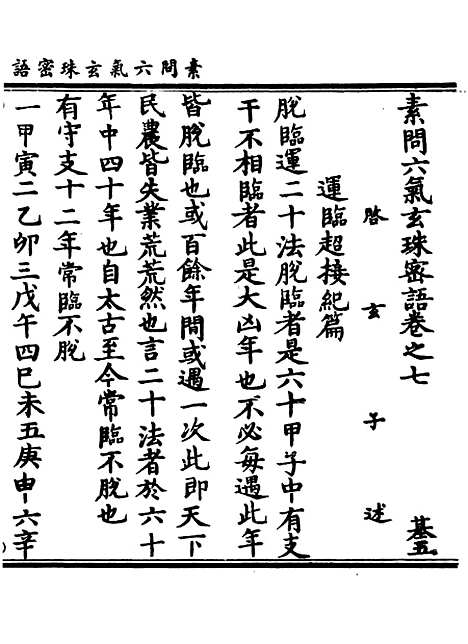 素問六氣玄珠密語
素問六氣玄珠密語卷之七 基五
啓玄子述
運臨超接紀篇
脫臨運二十法脫臨者是六十甲子中有支
干不相臨者此是大凶年也不必每遇此年
皆脫臨也或百餘年間或遇一次此即天下
民農皆失業荒荒然也言二十法者於六十
年中四十年也自太古至今常臨不脫也
有守支十二年常臨不脫
一甲寅二乙卯三戊午四巳未五庚申六辛